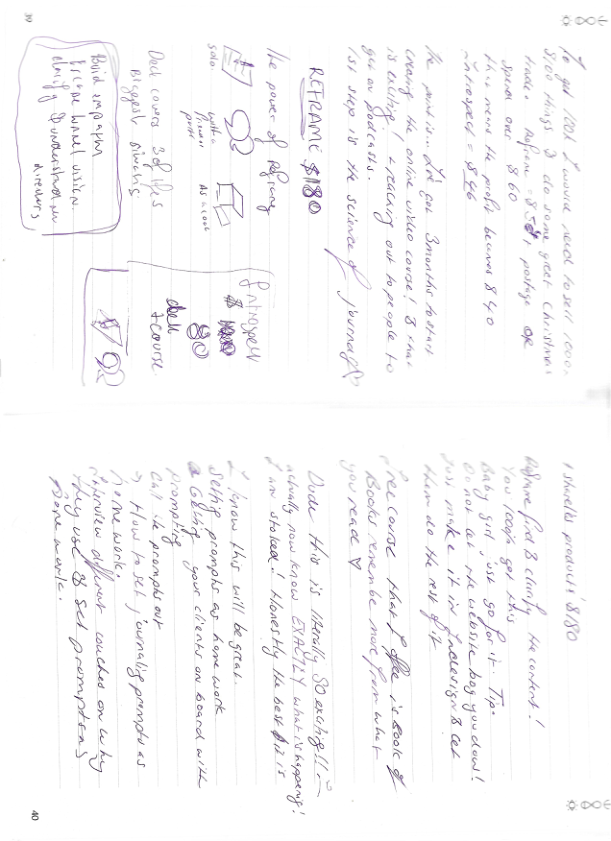 39
To get 100k I would need to sell 1000
$100 things I do some great Christmas
Reframe = $58, postage or
Spend over $60
that means the profit becomes $40
Introspect = $46
The point is... I've got 3 months to start
creating the online video course! & that
is exciting! & reaching out to people to
get on podcasts.
1st step is the science of journaling
REFRAME $180
The power of Reframing
solo
with a
person
As a
Introspect
$
80
deck
+ course
Deck covers 3 of life's
Biggest
Build empathy
tunnel vision
clarify & understand
directions
1 product $180
Reframe first & clarify the content!
You totally got this
Baby girl, just go for it. Tip:
Do not let the website bog you down!
Just make it in Indesign & let
them do the rest of it
Free course that I offer is Book of
Books remember more from what
you read ♡
Dude this is literally SO exciting!! I
actually now know EXACTLY what is happening!
I am stoked! Honestly the best it is
I know this will be great.
Setting prompts as homework
& Getting your clients on board with
Prompting
Call the prompts out
→ How to set journaling prompts as
homework.
interview different coaches on why
they use & set prompts as
homework.
40